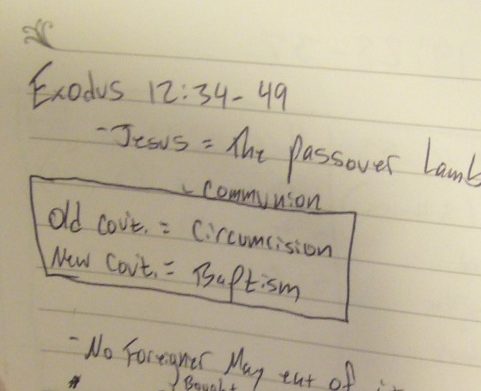 Exodus 12:34-49
-Jesus = The Passover Lamb
Communion
Old Cov't. = Circumcision
New Cov't. = Baptism
-No Foreigner May eat of it
Bought